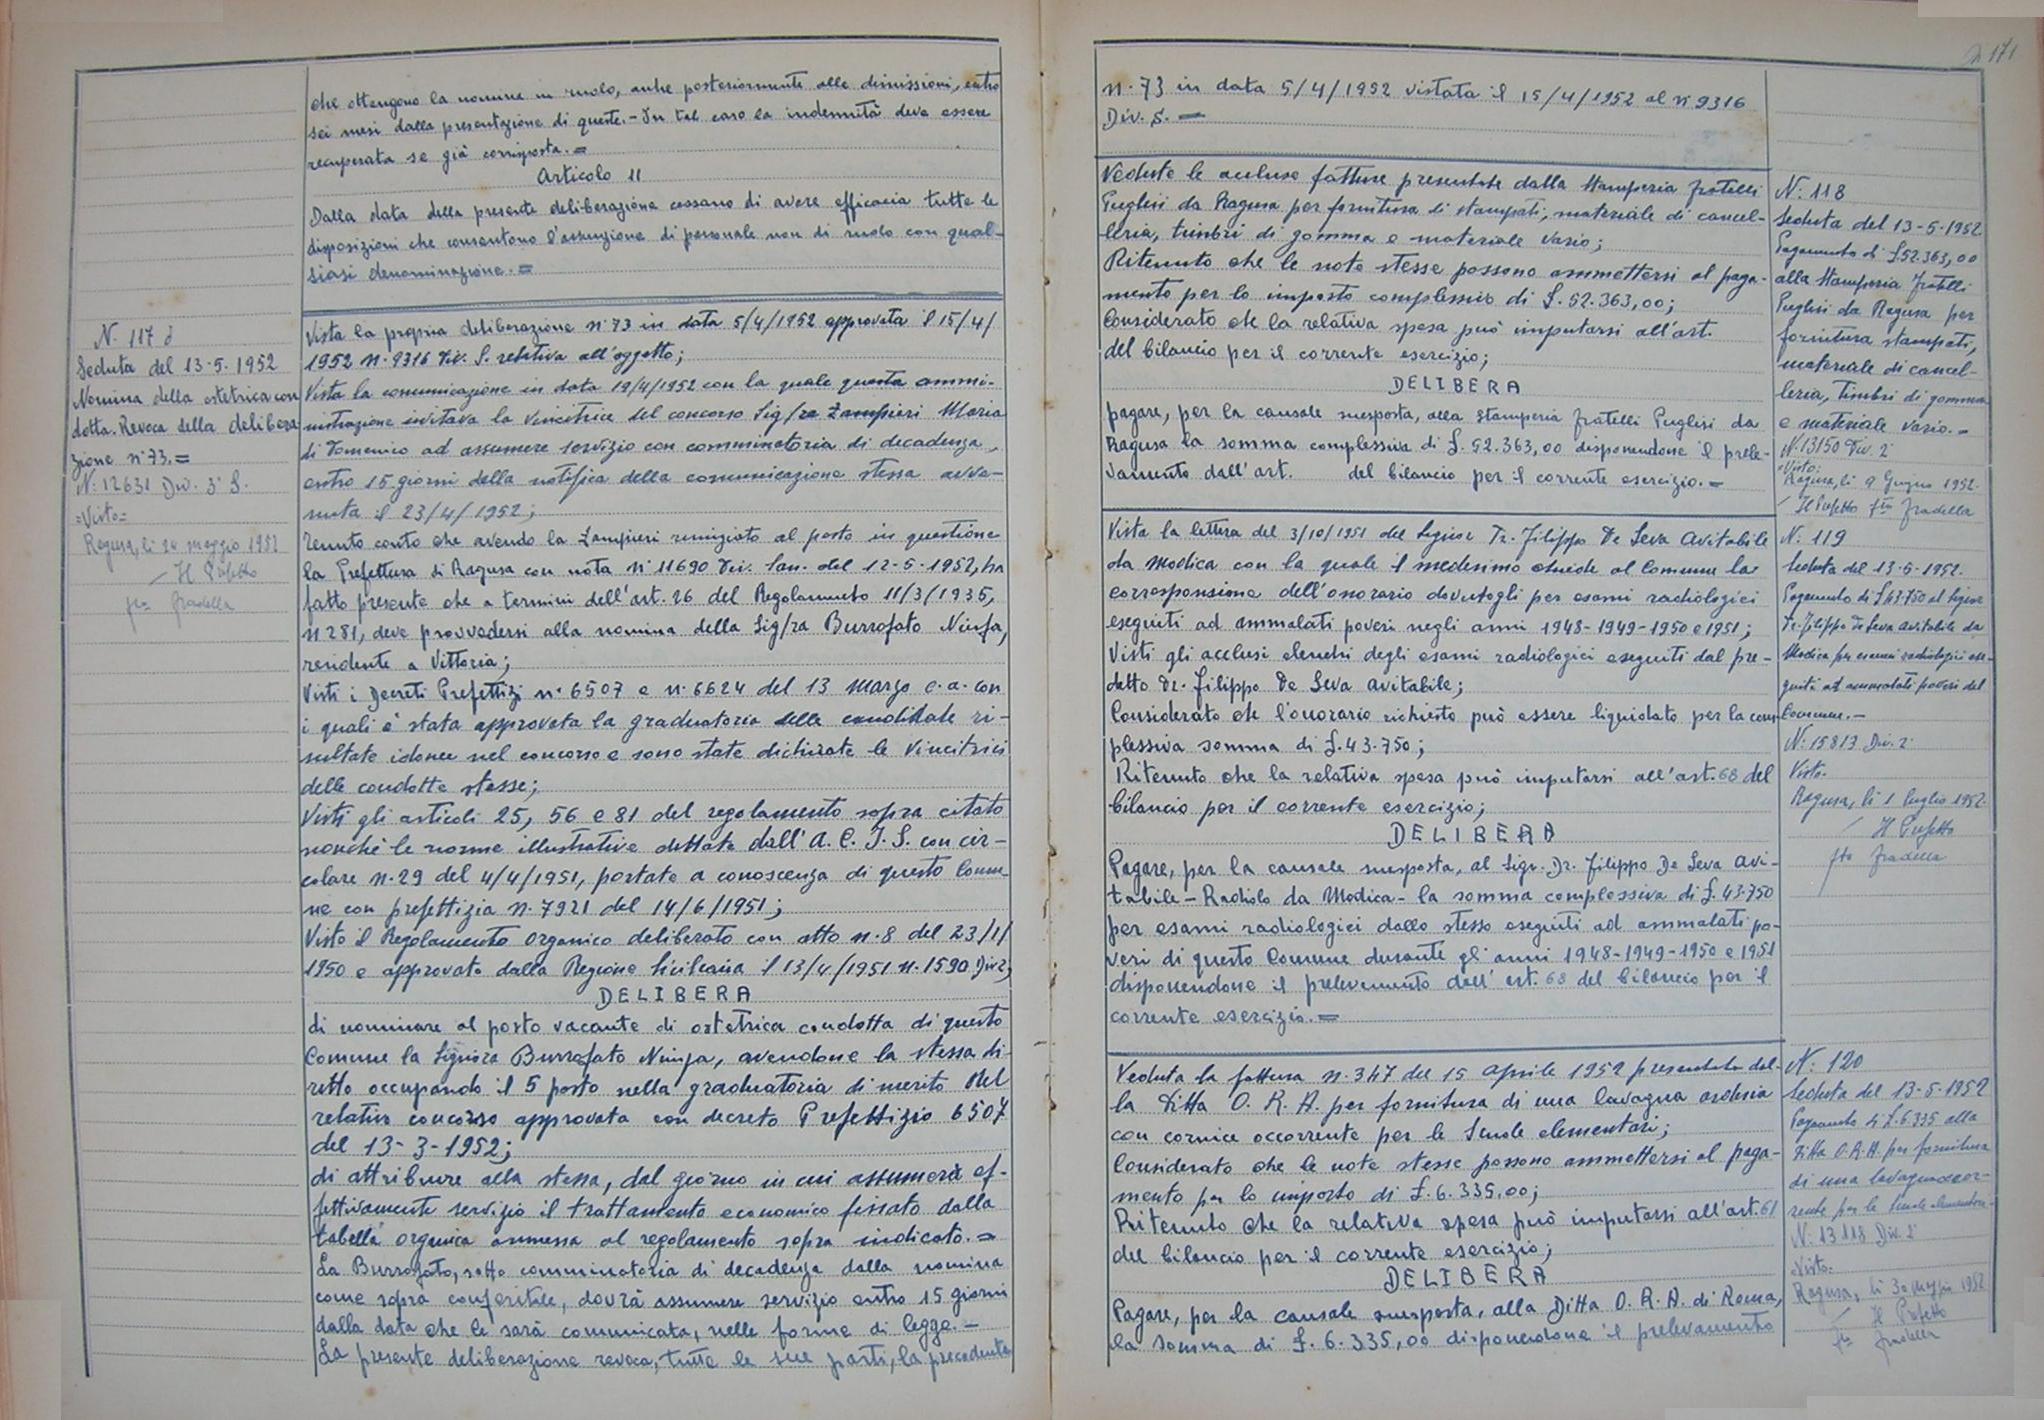 che ottengono la nomina in ruolo, anche posteriormente alle dimissioni, entro
sei mesi dalla presentazione di queste.- In tal caso la indennità deve essere
recuperata se già corrisposta.=
Articolo 11
Dalla data della presente deliberazione cessano di avere efficacia tutte le
disposizioni che consentono l'assunzione di personale non di ruolo con qual-
siasi denominazione.=
N. 117
Seduta del 13-5-1952
Nomina della ostetrica con
dotta. Revoca della delibera
zione n°73.=
N. 12631 Div. 3ª S.
=Visto=
Ragusa, li 20 maggio 1952
Il Prefetto
fto Gradella
Vista la propria deliberazione n°73 in data 5/4/1952 approvata il 15/4/
1952 n. 9316 Div. S. relativa all'oggetto;
Vista la comunicazione in data 19/4/1952 con la quale questa ammi-
nistrazione invitava la vincitrice del concorso Sig/ra Zampieri Maria
di Domenico ad assumere servizio con comminatoria di decadenza,
entro 15 giorni della notifica della comunicazione stessa avve-
nuta il 23/4/1952;
Tenuto conto che avendo la Zampieri rinunziato al posto in questione
la Prefettura di Ragusa con nota n° 11690 Div. San. del 12-5-1952, ha
fatto presente che a termini dell'art. 26 del Regolamento 11/3/1935,
n 281, deve provvedersi alla nomina della Sig/ra Burrafato Ninfa,
residente a Vittoria;
Visti i Decreti Prefettizi n° 6507 e n. 6624 del 13 Marzo c.a. con
i quali è stata approvata la graduatoria delle candidate ri-
sultate idonee nel concorso e sono state dichiarate le vincitrici
delle condotte stesse;
Visti gli articoli 25, 56 e 81 del regolamento sopra citato
nonché le norme illustrative dettate dall'A.C.I.S. con cir-
colare n. 29 del 4/4/1951, portate a conoscenza di questo Comu-
ne con prefettizia n. 7921 del 14/6/1951;
Visto il Regolamento Organico deliberato con atto n. 8 del 23/1/
1950 e approvato dalla Regione Siciliana il 13/4/1951 n. 1590 Div 2;
DELIBERA
di nominare al posto vacante di ostetrica condotta di questo
Comune la Signora Burrafato Ninfa, avendone la stessa di-
ritto occupando il 5 posto nella graduatoria di merito del
relativo concorso approvata con decreto Prefettizio 6507
del 13-3-1952;
di attribuire alla stessa, dal giorno in cui assumerà ef-
fettivamente servizio il trattamento economico fissato dalla
tabella organica annessa al regolamento sopra indicato.=
La Burrafato, sotto comminatoria di decadenza dalla nomina
come sopra conferitale, dovrà assumere servizio entro 15 giorni
dalla data che le sarà comunicata, nelle forme di legge.-
La presente deliberazione revoca, tutte le sue parti, la precedente
171
n. 73 in data 5/4/1952 vistata il 15/4/1952 al n° 9316
Div. S.-
Vedute le accluse fatture presentate dalla Stamperia Fratelli
Puglisi da Ragusa per fornitura di stampati, materiale di cancel-
leria, timbri di gomma e materiale vario;
Ritenuto che le note stesse possono ammettersi al paga-
mento per lo importo complessivo di £. 52.363,00;
Considerato che la relativa spesa può imputarsi all'art.
del bilancio per il corrente esercizio;
DELIBERA
pagare, per la causale suesposta, alla Stamperia Fratelli Puglisi da
Ragusa la somma complessiva di £. 52.363,00 disponendone il prele-
vamento dall'art. del bilancio per il corrente esercizio.=
N. 118
Seduta del 13-5-1952
Pagamento di £52.363,00
alla Stamperia Fratelli
Puglisi da Ragusa per
fornitura stampati,
materiale di cancel-
leria, timbri di gomma
e materiale vario.=
N. 13150 Div. 2ª
=Visto=
Ragusa, li 9 Giugno 1952.
Il Prefetto fto Gradella
Vista la lettera del 3/10/1951 del Signor Dr. Filippo De Leva Avitabile
da Modica con la quale il medesimo chiede al Comune la
corresponsione dell'onorario dovutogli per esami radiologici
eseguiti ad ammalati poveri negli anni 1948-1949-1950 e 1951;
Visti gli acclusi elenchi degli esami radiologici eseguiti dal pre-
detto Dr. Filippo De Leva Avitabile;
Considerato che l'onorario richiesto può essere liquidato per la com-
plessiva somma di £. 43.750;
Ritenuto che la relativa spesa può imputarsi all'art. 68 del
bilancio per il corrente esercizio;
DELIBERA
Pagare, per la causale suesposta, al Sigr. Dr. Filippo De Leva Avi-
tabile - Radiolo da Modica - la somma complessiva di £. 43.750
per esami radiologici dallo stesso eseguiti ad ammalati po-
veri di questo Comune durante gli anni 1948-1949-1950 e 1951
disponendone il prelevamento dall'art. 68 del bilancio per il
corrente esercizio.=
N. 119
Seduta del 13-5-1952.
Pagamento di £43.750 al Signor
Dr. Filippo De Leva Avitabile da
Modica per esami radiologici ese-
guiti ad ammalati poveri del
Comune.-
N. 15813 Div. 2ª
Visto.
Ragusa, li 1 luglio 1952.
Il Prefetto
fto Gradella
Veduta la fattura n. 347 del 15 Aprile 1952 presentata dal-
la Ditta O.R.A. per fornitura di una lavagna ardesia
con cornice occorrente per le Scuole elementari;
Considerato che le note stesse possono ammettersi al paga-
mento per lo importo di £. 6.335,00;
Ritenuto che la relativa spesa può imputarsi all'art. 61
del bilancio per il corrente esercizio;
DELIBERA
Pagare, per la causale suesposta, alla Ditta O.R.A. di Roma,
la somma di £. 6.335,00 disponendone il prelevamento
N. 120
Seduta del 13-5-1952
Pagamento di £.6.335 alla
Ditta O.R.A. per fornitura
di una lavagna occor-
rente per le Scuole elementari.-
N. 13118 Div. 2ª
=Visto=
Ragusa, li 30 maggio 1952
Il Prefetto
fto Gradella